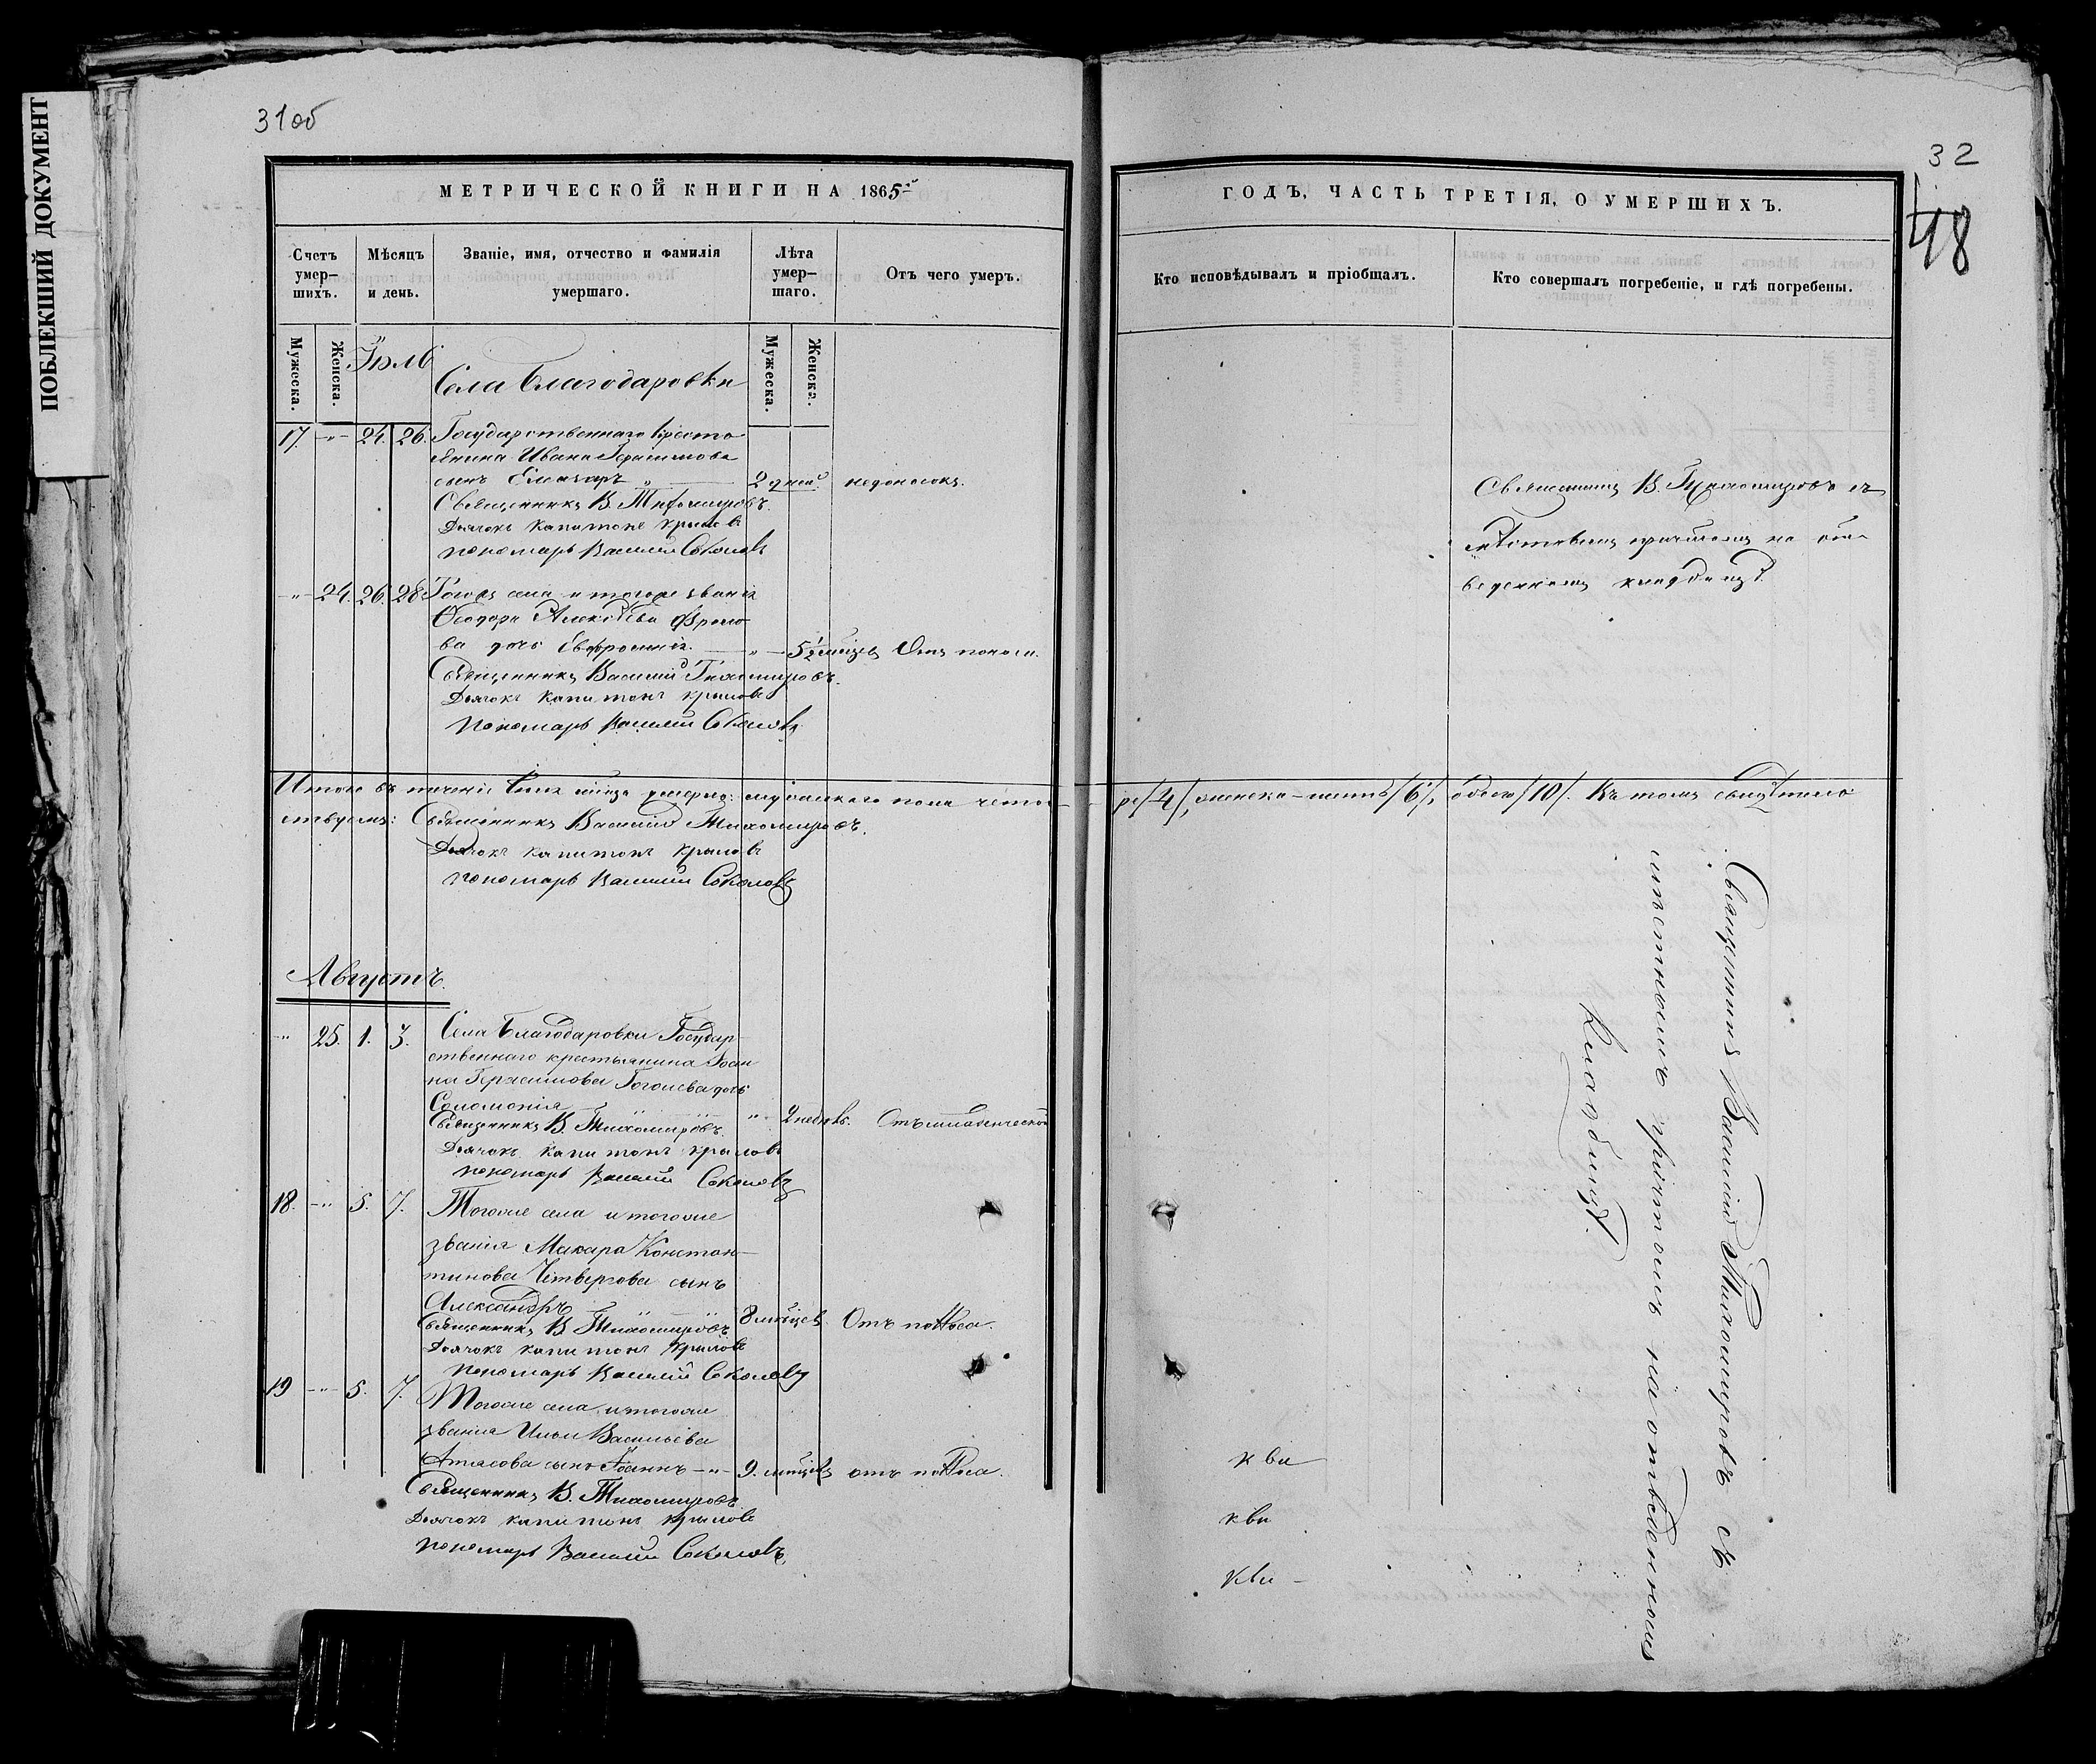 ПОБЛЕКШИЙ ДОКУМЕНТ
31об
МЕТРИЧЕСКОЙ КНИГИ НА 1865й
Счетъ умер-шихъ.
Мѣсяцъ и день.
Званіе, имя, отчество и фамилія умершаго.
Лѣта умер-шаго.
Отъ чего умеръ.
Мужеска.
Женска.
Мужеска.
Женска.
Села Благодаровки
17. -"- 24. 26. Государственнаго кресть
янина Ивана Герасимова
сынъ Елиазаръ " 2 дней недоносокъ.
Священникъ В. Тихомировъ.
Дьячокъ Капитонъ Крыловъ
пономарь Василий Соколовъ
-"- 24. 26. 28. Тогоже села и тогоже званія
Ѳеодора Алексѣева Фроло
ва дочь Евфросинія. -"- 5½ мѣсцев Отъ поноса.
Священникъ Василий Тихомировъ.
Дьячокъ Капитонъ Крыловъ
пономарь Василий Соколовъ
Итого въ теченіе Іюля мѣсяца умерло: мужескаго пола четы-
ствуемъ: Священникъ Василий Тихомировъ.
Дьячокъ Капитонъ Крыловъ
пономарь Василий Соколовъ
Августъ.
" 25. 1. 3. Села Благодаровки Государ
ственнаго крестьянина Іоан
на Герасимова Гоголева дочь
Соломонія " 2 недѣль. Отъ младенческой
Священникъ В. Тихомировъ.
Дьячокъ Капитонъ Крыловъ
пономарь Василий Соколовъ
18. -"- 5. 7. Тогоже села и тогоже
званія Макара Констан-
тинова Четвергова сынъ
Александръ 8 мѣсцев. Отъ поноса.
Священникъ В. Тихомировъ
Дьячокъ Капитонъ Крыловъ
пономарь Василий Соколовъ
19 -"- 5. 7. Тогоже села и тогоже
званія Ильи Васильева
Атласова сынъ Іоаннъ -"- 9. мѣсцевъ отъ поноса.
Священникъ В. Тихомировъ
Дьячокъ Капитонъ Крыловъ
пономарь Василий Соколовъ
32
48
ГОДЪ, ЧАСТЬ ТРЕТІЯ, О УМЕРШИХЪ.
Кто исповѣдывалъ и пріобщалъ.
Кто совершалъ погребеніе, и гдѣ погребены.
Священникъ В. Тихомировъ съ
мѣстнымъ причтомъ на от
веденномъ кладбищѣ.
ре /4/, женска - шесть /6/, обоего /10/. Въ томъ свидѣтель
Священникъ Василий Тихомировъ съ
мѣстнымъ причтомъ на отведенномъ
кладбищѣ.